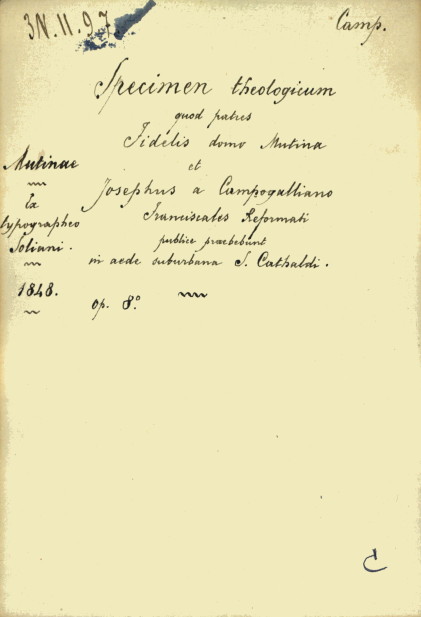 3N.11.97
Camp.
Specimen theologicum
quod patres
Fidelis domo Mutina
et
Josephus a Campogalliano
Franciscales Reformati
publice praebebunt
in aede suburbana S. Cathaldi.
Mutinae
Ex
typographeo
Soliani.
1848.
op. 8.°
C